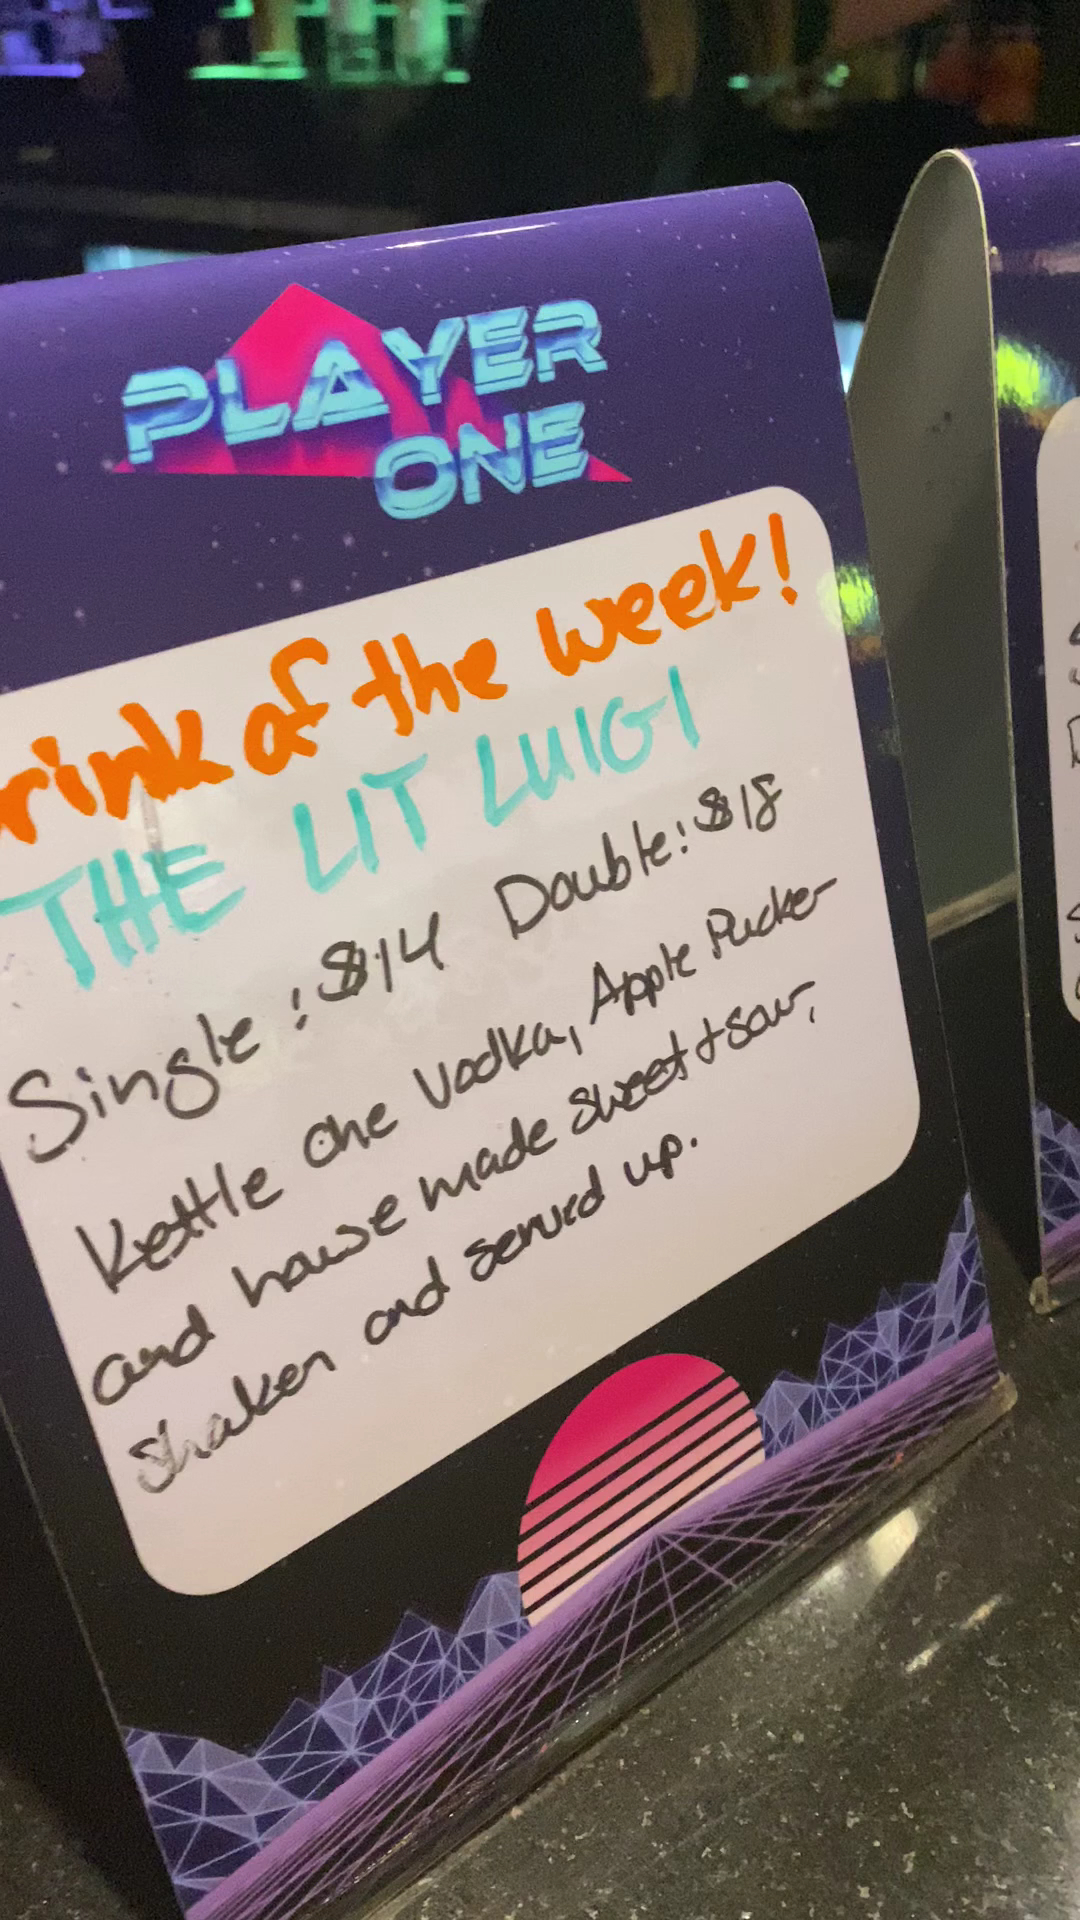 PLAYER
ONE
rink of the week!
THE LIT LUIGI
Single: $14 Double: $18
Kettle one Vodka, Apple Pucker
and house made sweet + sour,
Shaken and served up.